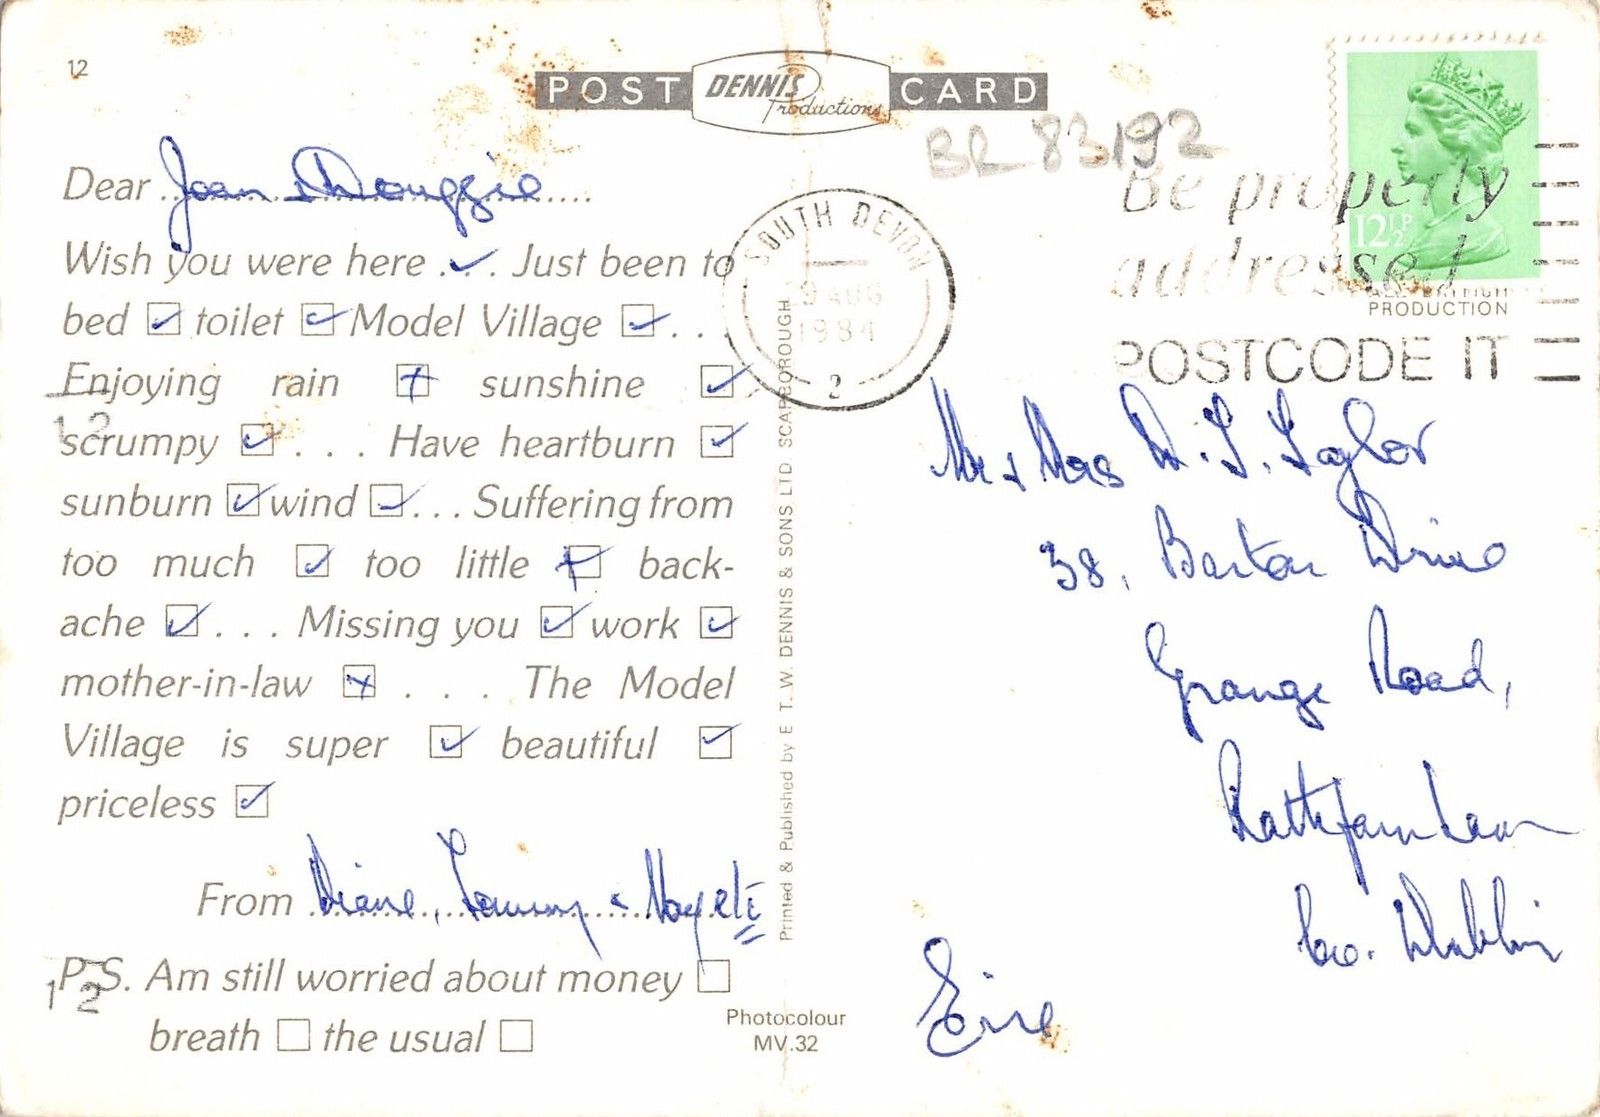 12
POST DENNIS Productions CARD
BR 83192
Dear Joan & Douggie
Wish you were here ✓. Just been to
bed ☑ toilet ☑ Model Village ☑ . .
Enjoying rain ☒ sunshine ☑
scrumpy ☑ . . . Have heartburn ☑
sunburn ☑ wind ☑ . . . Suffering from
too much ☑ too little ☒ back-
ache ☑ . . . Missing you ☑ work ☑
mother-in-law ☒ . . . The Model
Village is super ☑ beautiful ☑
priceless ☑
From Diane, Tammy &
P.S. Am still worried about money ☐
breath ☐ the usual ☐
12
12
Printed & Published by E. T. W. DENNIS & SONS LTD. SCARBOROUGH
Photocolour
MV.32
SOUTH DEVON
AUG
1984
2
Be properly
addressed
POSTCODE IT
12½P
ALL BRITISH
PRODUCTION
Mr & Mrs D. T. Taylor
38, Barton Drive
Grange Road,
Rathfarnham
Co. Dublin
Eire